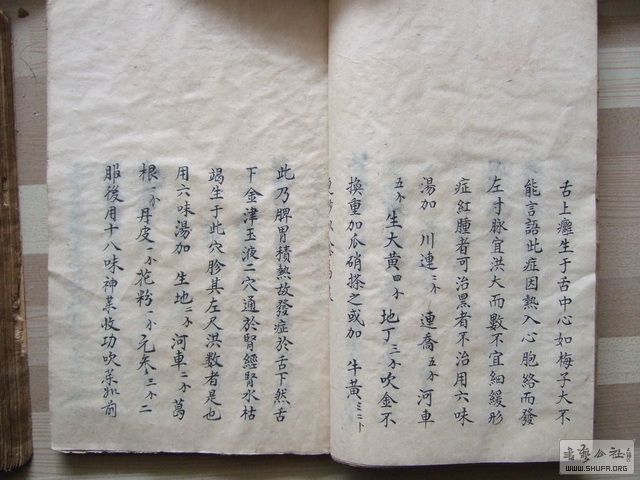 舌上癰生于舌中心如梅子大不
能言語此症因熱入心胞絡而發
左寸脉宜洪大而數不宜細緩形
症紅腫者可治黑者不治用六味
湯加 川連 三个 連喬 五个 河車
五个 生大黃 四个 地丁 三个 吹金不
換重加瓜硝搽之或加 牛黃
此乃脾胃積熱故發症於舌下然舌
下金津玉液二穴通於腎經腎水枯
竭生于此穴胗其左尺洪數者是也
用六味湯加 生地 二个 河車 二个 萬
根 一个 丹皮 一个 花粉 一个 元参 三个 二
服後用十八味神藥收功吹藥如前
書藝公社
WWW.SHUFA.ORG